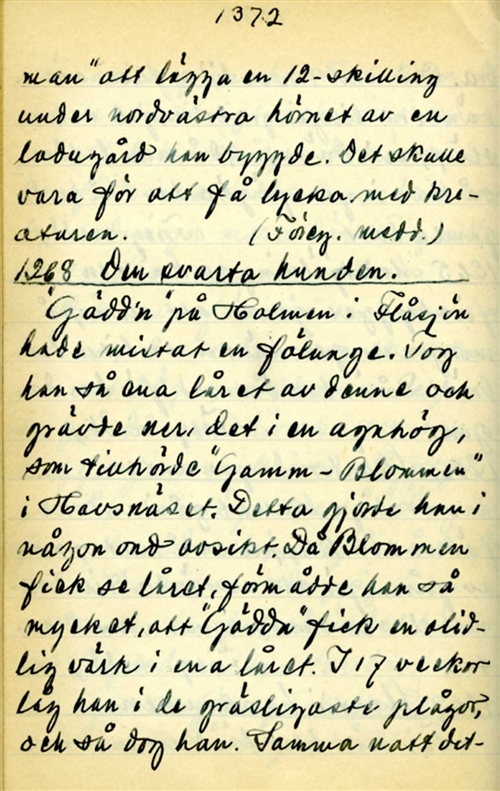 1372
man" att lägga en 12-skilling
under nordvästra hörnet av en
ladugård han byggde. Det skulle
vara för att få lycka med kre-
aturen. (Föreg. medd.)
1268 Den svarta hunden.
"Gädd'n" på Holmen i Flåsjön
hade mistat en fölunge. Tog
han så ena låret av denne och
grävde ner det i en agnhög,
som tillhörde "Gamm-Blommen"
i Havsnäset. Detta gjorde han i
någon ond avsikt. Då Blommen
fick se låret, förmådde han så
mycket, att "Gädda" fick en olid-
lig värk i ena låret. I 17 veckor
låg han i de gräsligaste plågor,
och så dog han. Samma natt det-